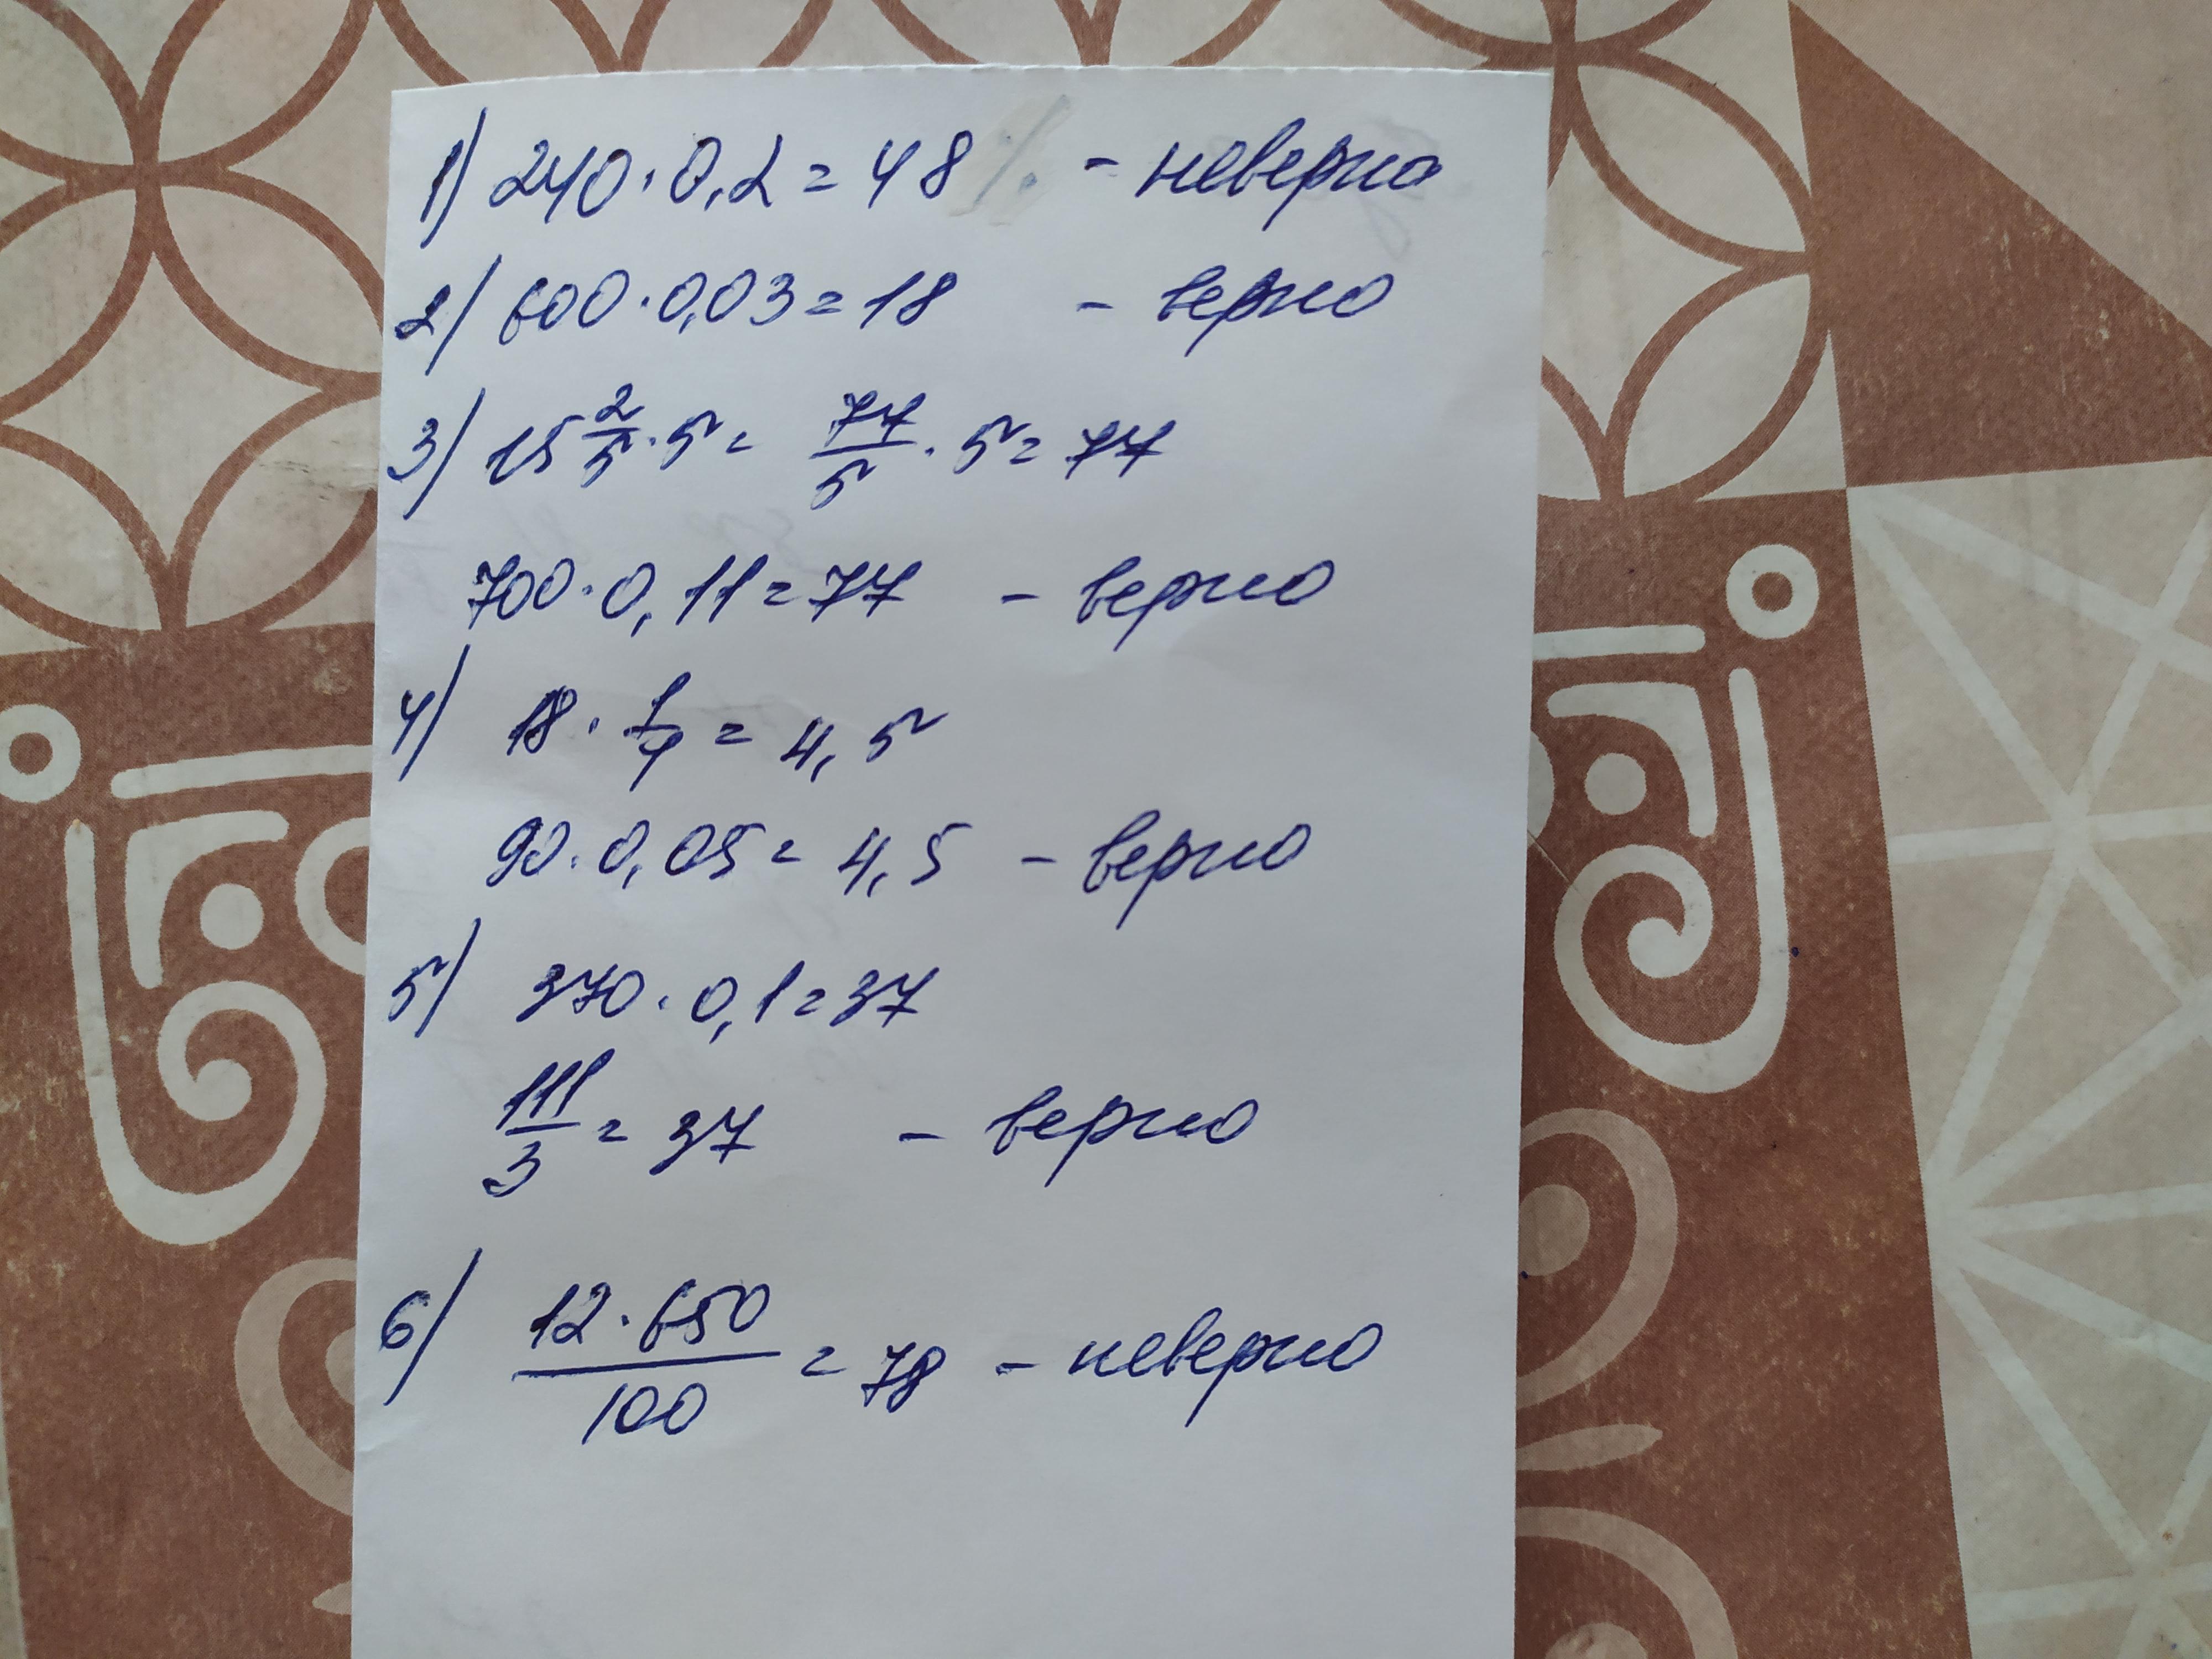 1) 240 · 0,2 = 48 % - неверно
2) 600 · 0,03 = 18 - верно
3) 15 2/5 · 5 = 77/5 · 5 = 77
700 · 0,11 = 77 - верно
4) 18 · 1/4 = 4,5
90 · 0,05 = 4,5 - верно
5) 370 · 0,1 = 37
111/3 = 37 - верно
6) 12 · 650/100 = 78 - неверно